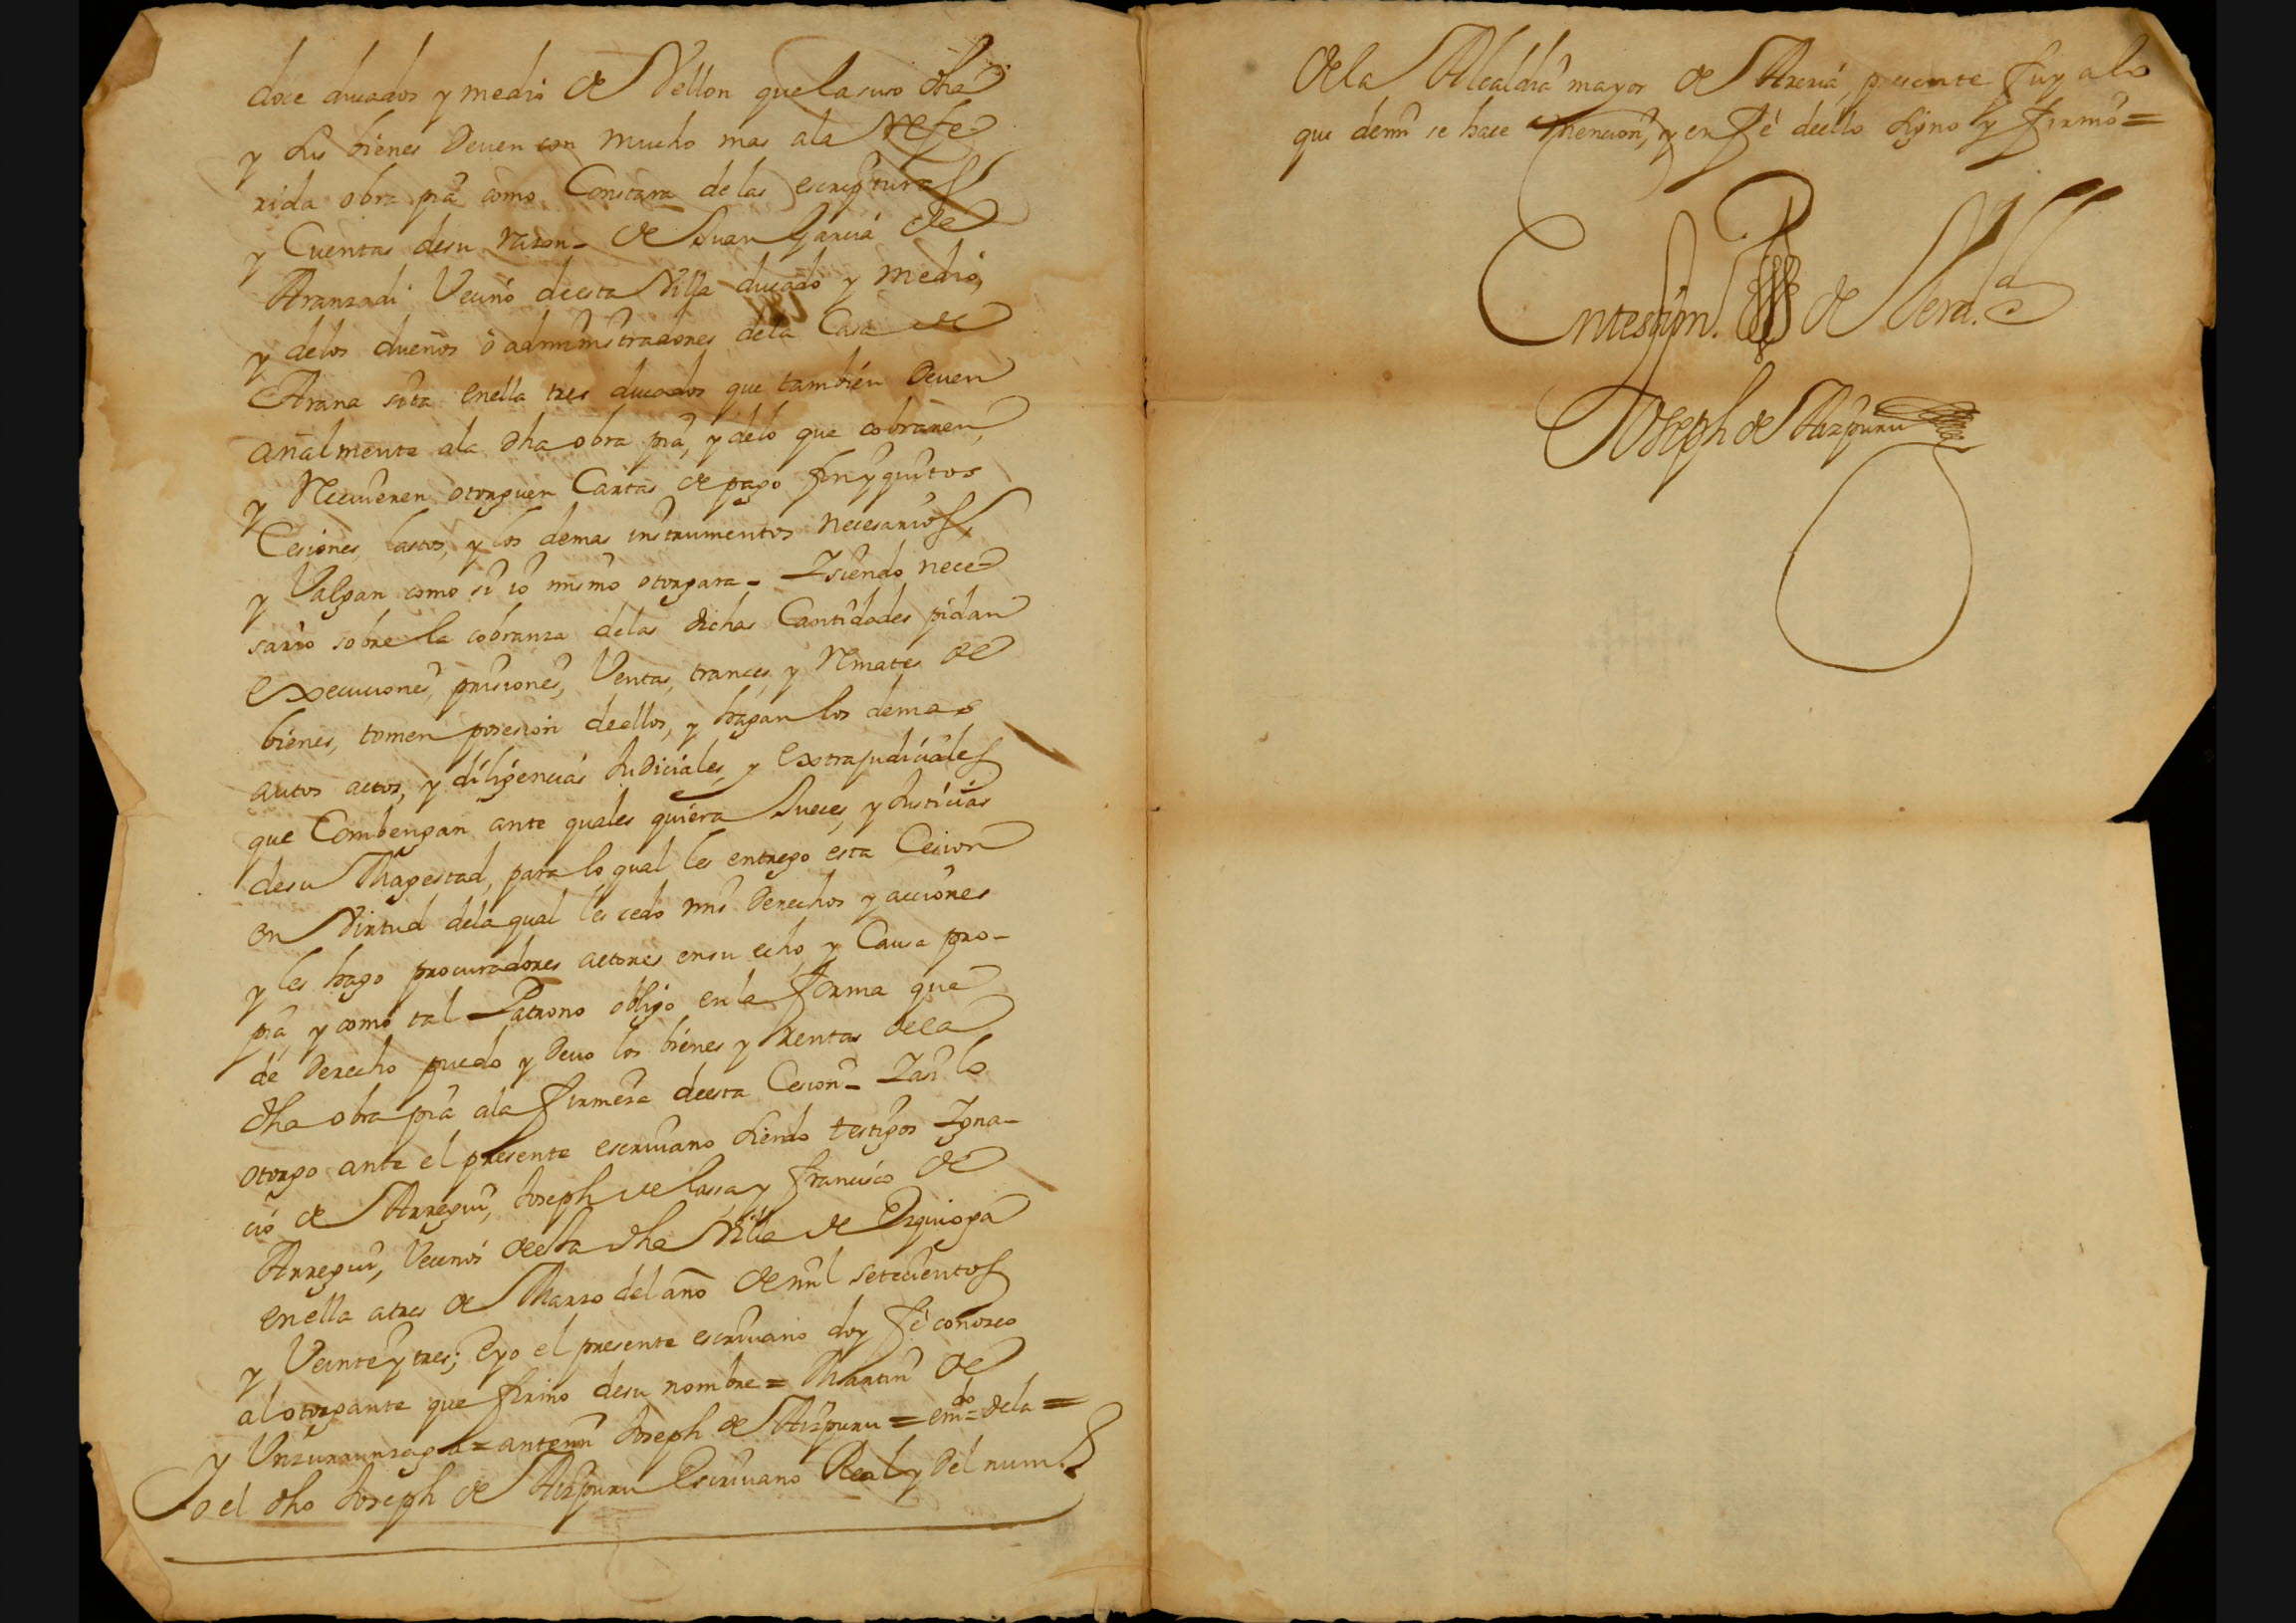 doce ducados y medio de Vellon que la suso dha
y sus bienes deven con mucho mas ala Refe-
rida obra pia como Constara de las escripturas
y Cuentas desu razon- de Juan Garcia de
Aranzadi Vecino deesta Villa ducado y medio,
y delos dueños o administradores dela Casa de
Arana sita enella tres ducados que también deven
añalmente ala dha obra pia, y delo que cobraren,
y Recivieren otorguen Cartas de pago finyquitos
Cesiones, lastos, y los demas instrumentos necesarios,
y Valgan como si io mismo otorgara- Isiendo nece-
sario sobre la cobranza delas dichas Cantidades pidan
execuciones, prisiones, Ventas, trances, y Remates de
bienes, tomen posesion deellos, y hagan los demas
autos actos, y diligencias Judiciales, y extrajudiciales
que Combengan ante quales quiera Jueces, y Justicias
desu Magestad, para lo qual les entrego esta Cesion
en Virtud dela qual les cedo mis derechos y acciones
y les hago procuradores actores ensu echo, y Causa pro-
pia, y como tal Patrono obligo enla forma que
de derecho puedo y devo los bienes y Rentas dela
dha obra pia ala firmeza deesta Cesion- Iasi lo
otorgo ante el presente escrivano siendo testigos Igna-
cio de Arregui, Joseph de lassa, y francisco de
Arregui, Vecinos deesta dha Villa de Ezquioga
enella atres de Marzo del año de mil setecientos
y Veinte y tres; e yo el presente escrivano doy fé conozco
al otorgante que firmo desu nombre = Martin de
Unzurrunzaga = antemi Joseph de Aizpuru = emdo = dela =
Yo el dho Joseph de Aizpuru Escrivano Real y del num.o
dela Alcaldia mayor de Areria, presente fuy alo
que demi se hace mencion, y en fé deello signo y firmo =
Entestim.o de Verd.d
Joseph de Aizpuru